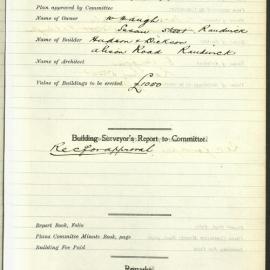 Plan approved by Committee
Name of Owner W Waugh
Street Randwick
Name of Builder Hudson & Dickson
Alison Road Randwick
Name of Architect
Value of Buildings to be erected. £1000
Building Surveyor's Report to Committee.
Rec for approval
Report Book, Folio
Plans Committee Minute Book, page
Building Fee Paid
Remarks